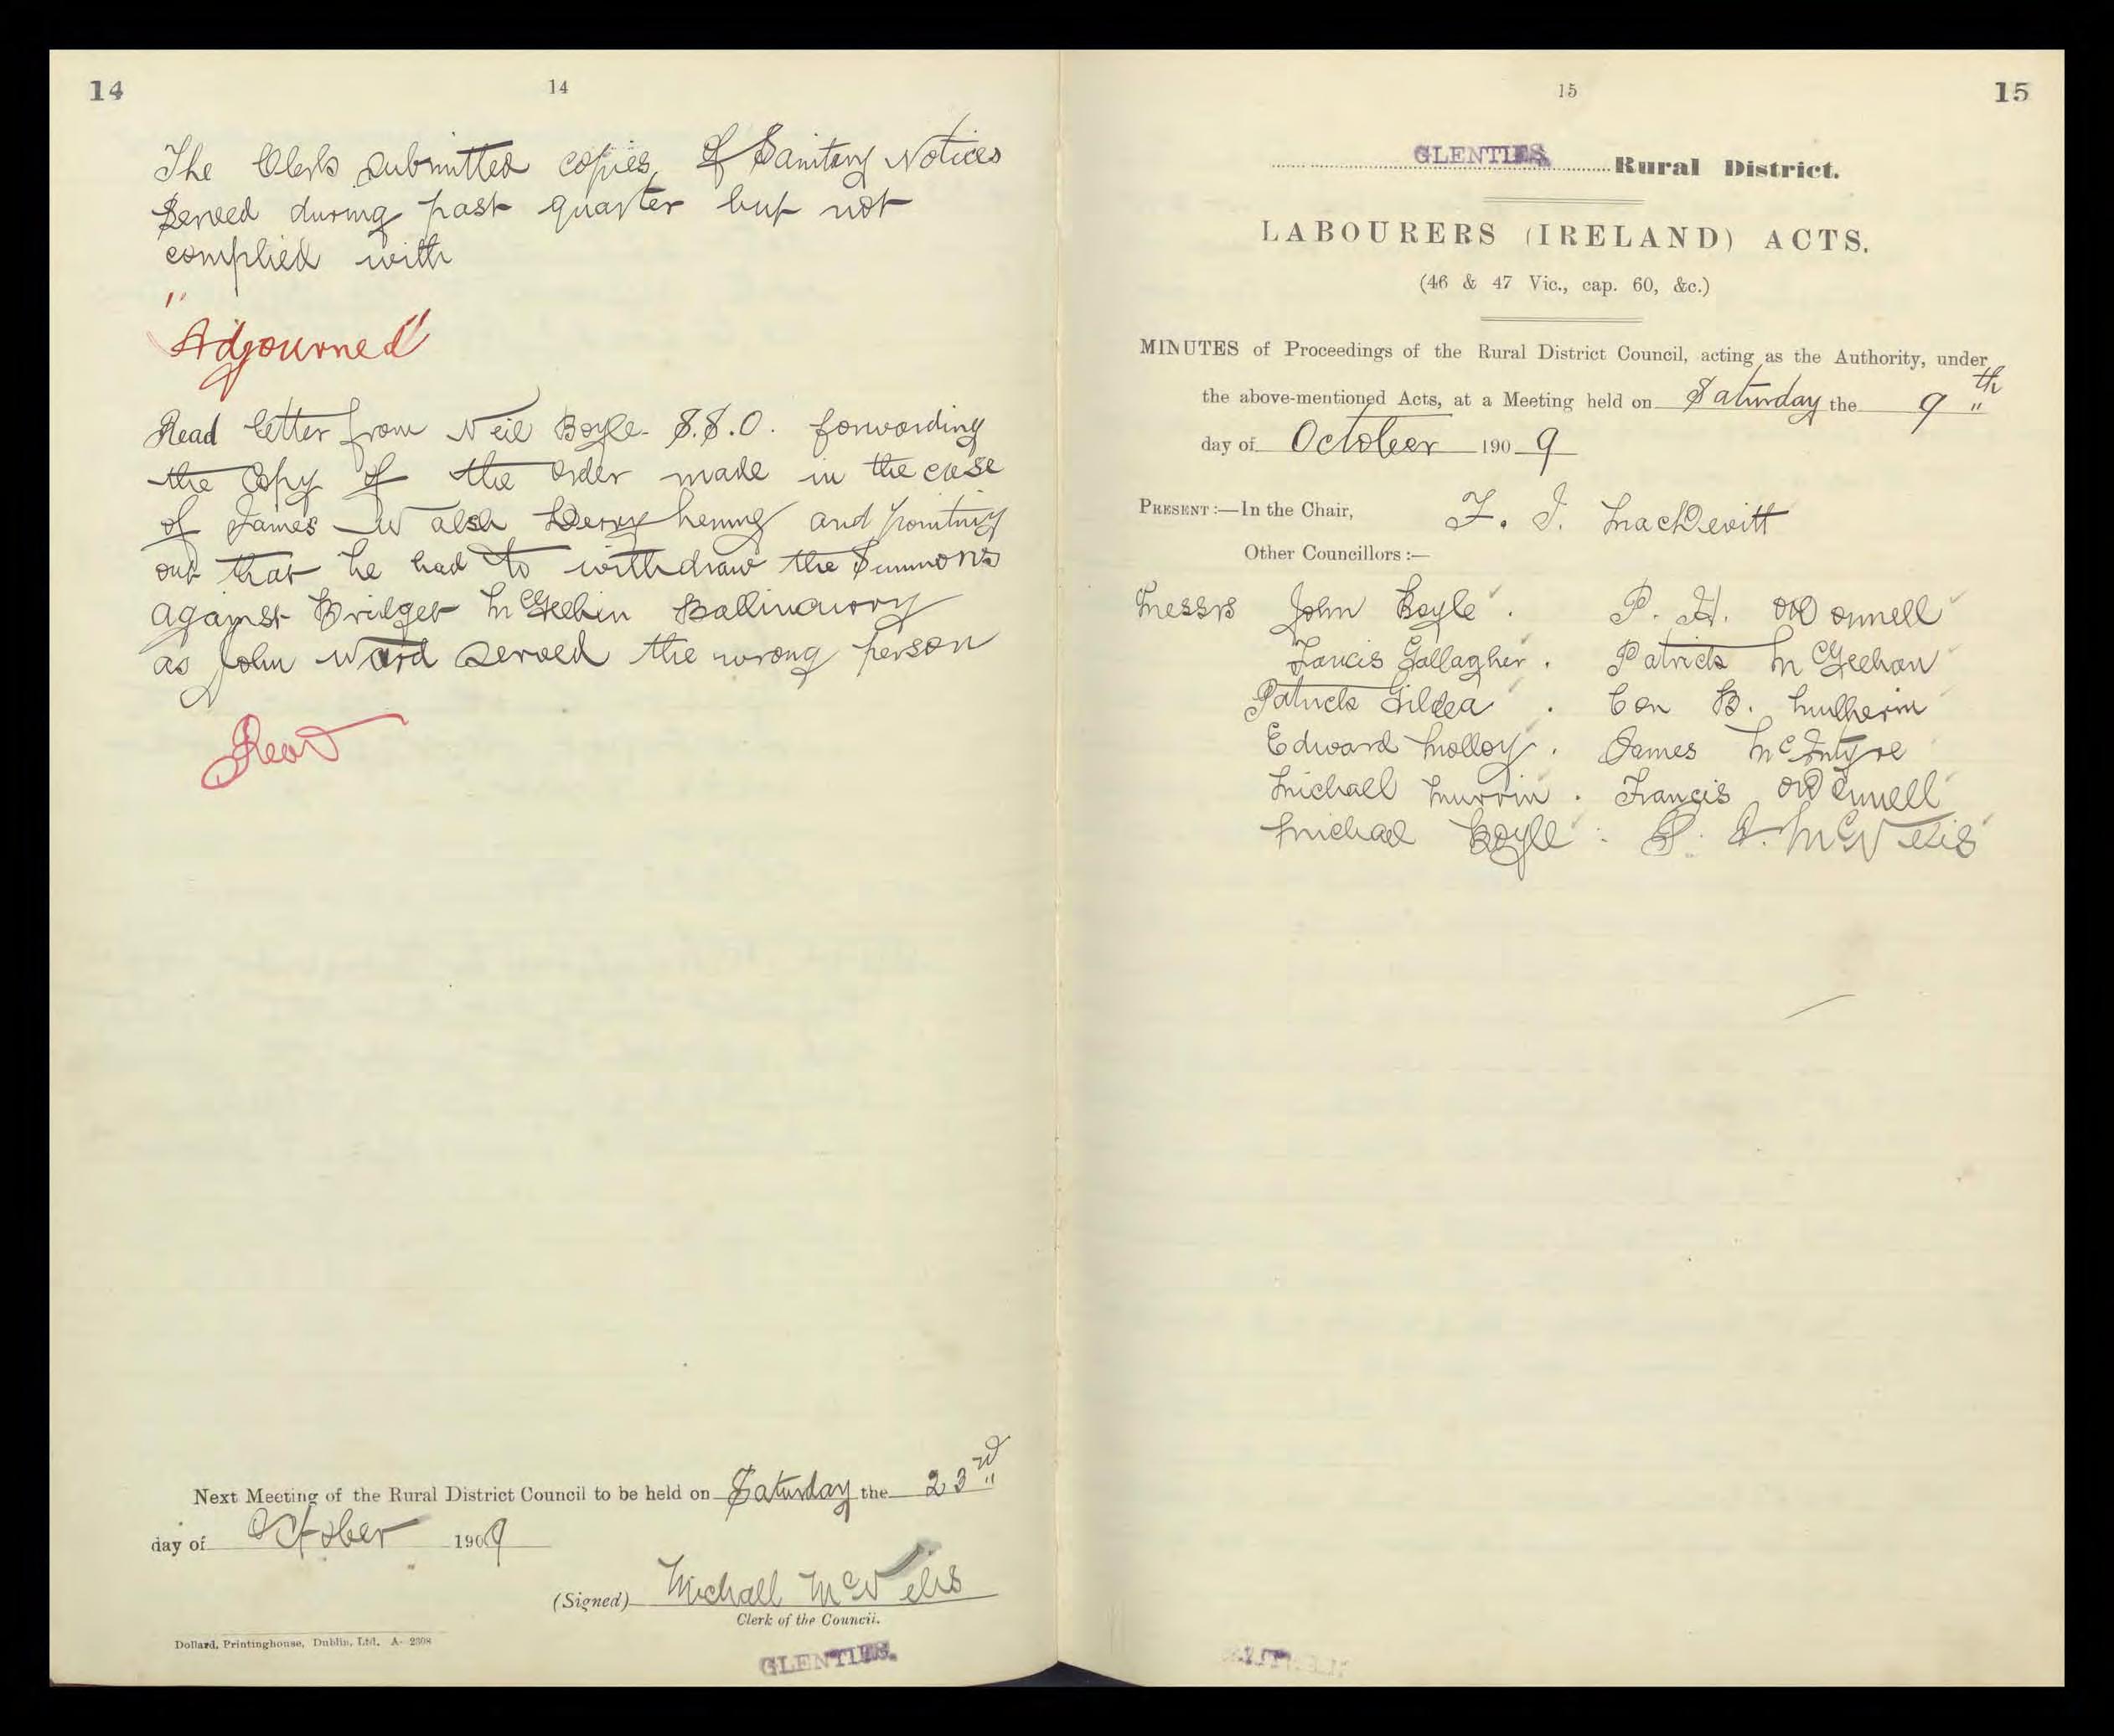 14
14
The Clerk submitted copies of Sanitary Notices
Served during past quarter but not
complied with
"Adjourned"
Read letter from Neil Boyle S.S.O. forwarding
the Copy of the order made in the case
of James Walsh and pointing
out that he had to withdraw the Summons
against Bridget McGeehin
as John Ward Served the wrong person
Read
Next Meeting of the Rural District Council to be held on Saturday the 23rd
day of October 1909
(Signed) Michall McNelis
Clerk of the Council.
Dollard, Printinghouse, Dublin, Ltd. A- 2308
GLENTIES.
15
15
GLENTIES Rural District.
LABOURERS (IRELAND) ACTS.
(46 & 47 Vic., cap. 60, &c.)
MINUTES of Proceedings of the Rural District Council, acting as the Authority, under
the above-mentioned Acts, at a Meeting held on Saturday the 9th
day of October 1909
PRESENT:—In the Chair, F. J. MacDevitt
Other Councillors:—
Messrs John Boyle. P. H. O'Donnell
Francis Gallagher. Patrick McGeehan
Patrick Gildea. Con B. Mulherin
Edward Molloy. James McIntyre
Michall Murrin. Francis O'Donnell
Michael Boyle: P. J. McNelis